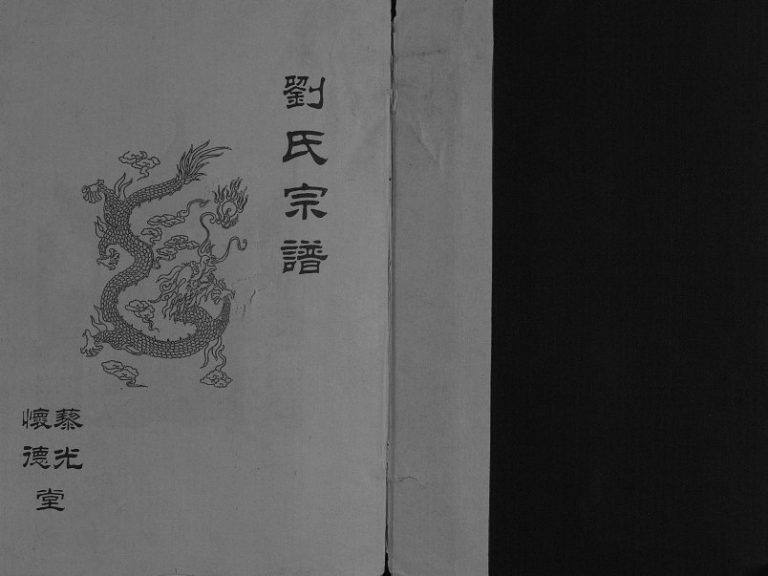 劉氏宗譜
藜光
懷德
堂